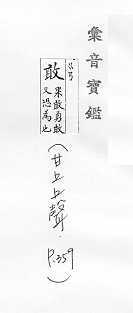 彙音寶鑑
敢
果敢勇敢
又恐為也
(甘上上聲)
P.359